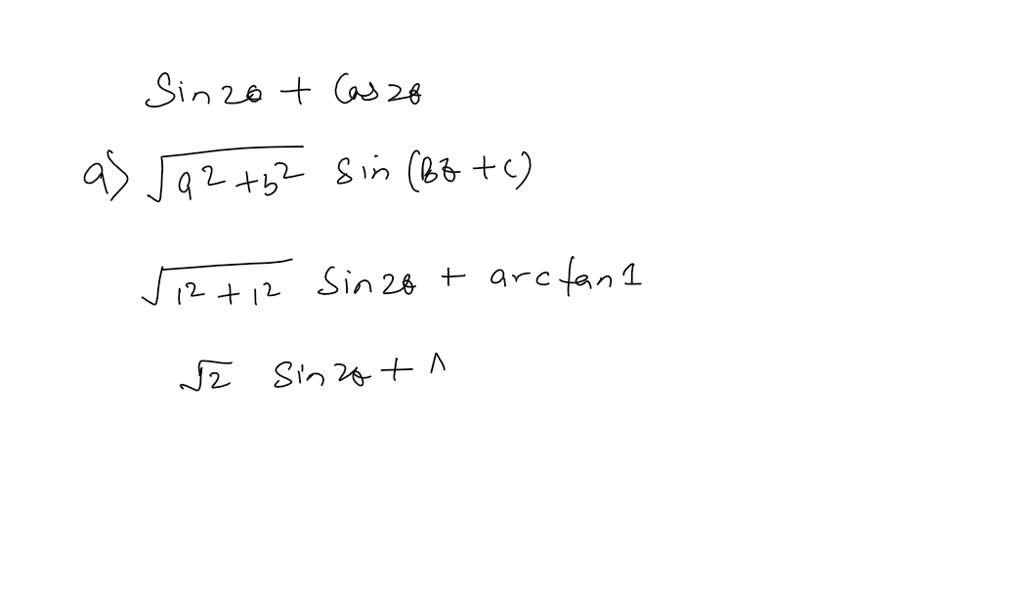 Sin2θ + Cos2θ
a) √(a² + b²) sin (Bθ + C)
√(1² + 1²) Sin2θ + arctan1
√2 Sin2θ + ^